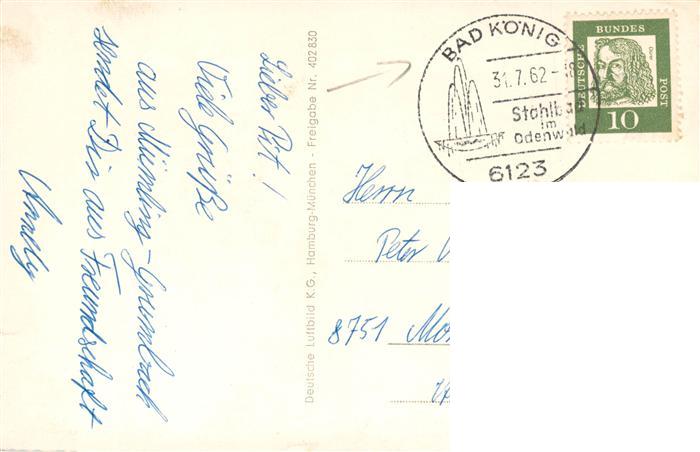 Lieber Pit!
Viele Grüße
aus Mümling-Grumbach
sendet Dir aus Freundschaft
Deutsche Luftbild K.G., Hamburg-München - Freigabe Nr. 402 830
BAD KÖNIG
31.7.62-18
Stahlba
im
Odenwald
6123
DEUTSCHE BUNDES POST
Dürer
10
Herrn
Peter
8751